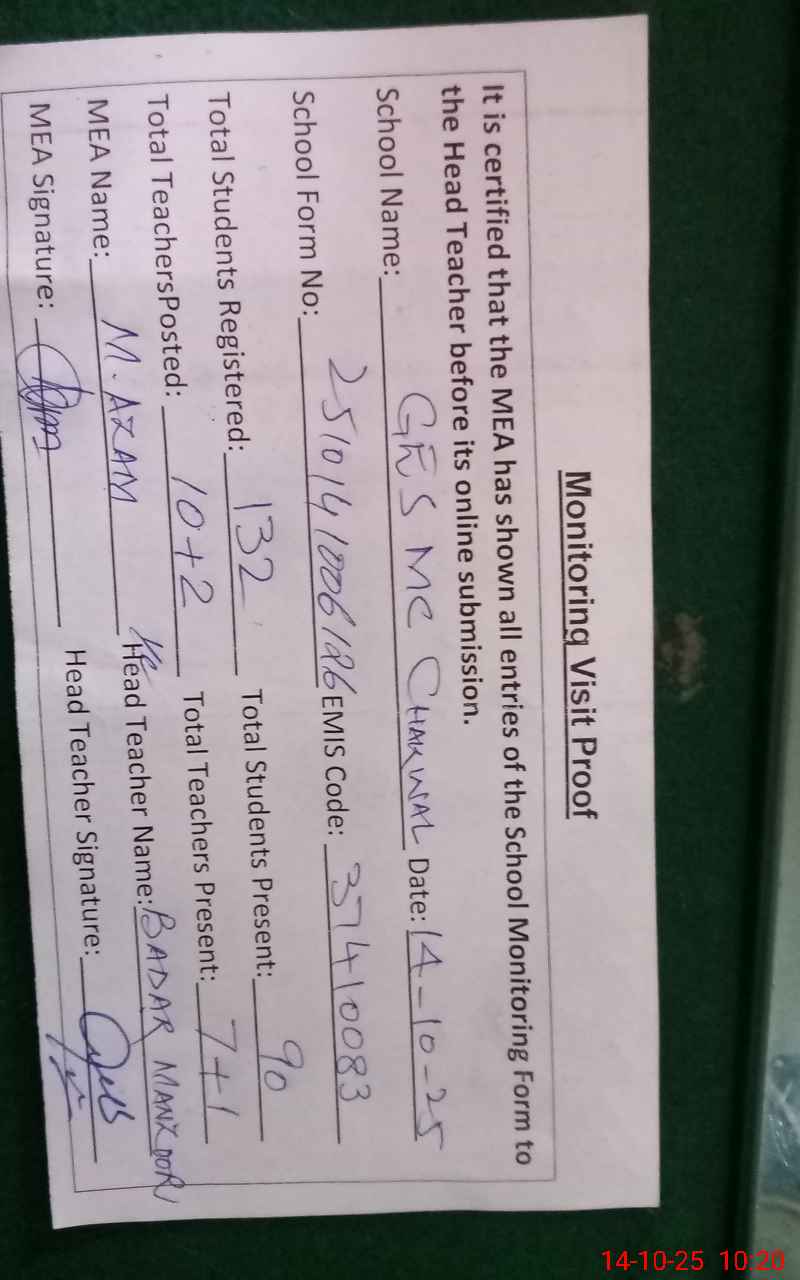 Monitoring Visit Proof
It is certified that the MEA has shown all entries of the School Monitoring Form to
the Head Teacher before its online submission.
School Name: GES MC CHAKWAL Date: 14-10-25
School Form No: 2510141006126 EMIS Code: 37410083
Total Students Registered: 132 Total Students Present: 90
Total TeachersPosted: 10+2 Total Teachers Present: 7+1
MEA Name: M. AZAM Head Teacher Name: BADAR MANZOOR
MEA Signature: Head Teacher Signature:
14-10-25 10:20